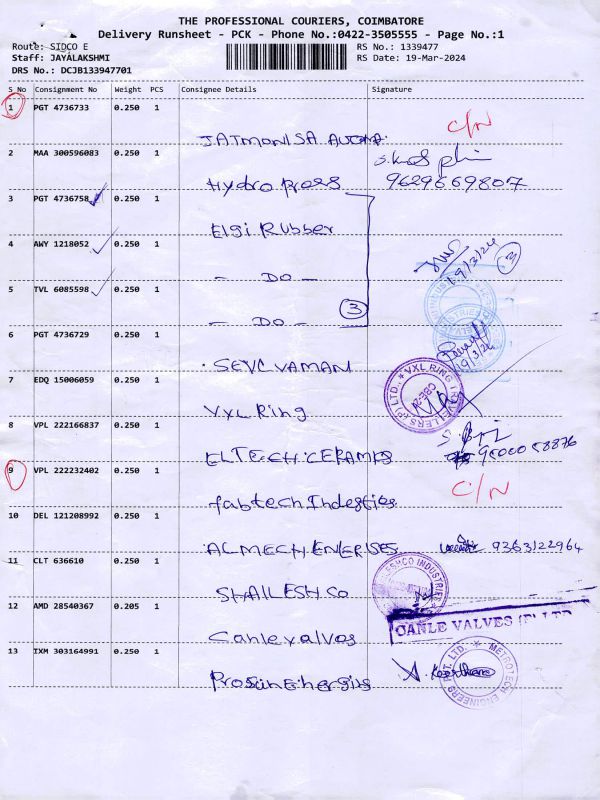 THE PROFESSIONAL COURIERS, COIMBATORE
Delivery Runsheet - PCK - Phone No.:0422-3505555 - Page No.:1
Route: SIDCO E RS No.: 1339477
Staff: JAYALAKSHMI RS Date: 19-Mar-2024
DRS No.: DCJB133947701
S No Consignment No Weight PCS Consignee Details Signature
1 PGT 4736733 0.250 1
C/N
2 MAA 300596083 0.250 1
Hydro press 9629669807
3 PGT 4736758 0.250 1
Elgi Rubber
4 AWY 1218052 0.250 1
- DO - 19/3/24 3
5 TVL 6085598 0.250 1
- DO - 3
6 PGT 4736729 0.250 1
SEVCVAMAN 19/3/24
7 EDQ 15006059 0.250 1
VXL RING TRAVELLERS (P) LTD. CBE-21
VXL Ring
8 VPL 222166837 0.250 1
ELTECH.CERAMPS
9 VPL 222232402 0.250 1
C/N
fabtech.Indesties
10 DEL 121208992 0.250 1
ALMECH.ENERISES 9363122964
11 CLT 636610 0.250 1
SHAILESH CO
12 AMD 28540367 0.205 1
OANLE VALVES (P) LTD
Canlevalves
13 IXM 303164991 0.250 1
METROTECH ENGINEERS PVT. LTD.